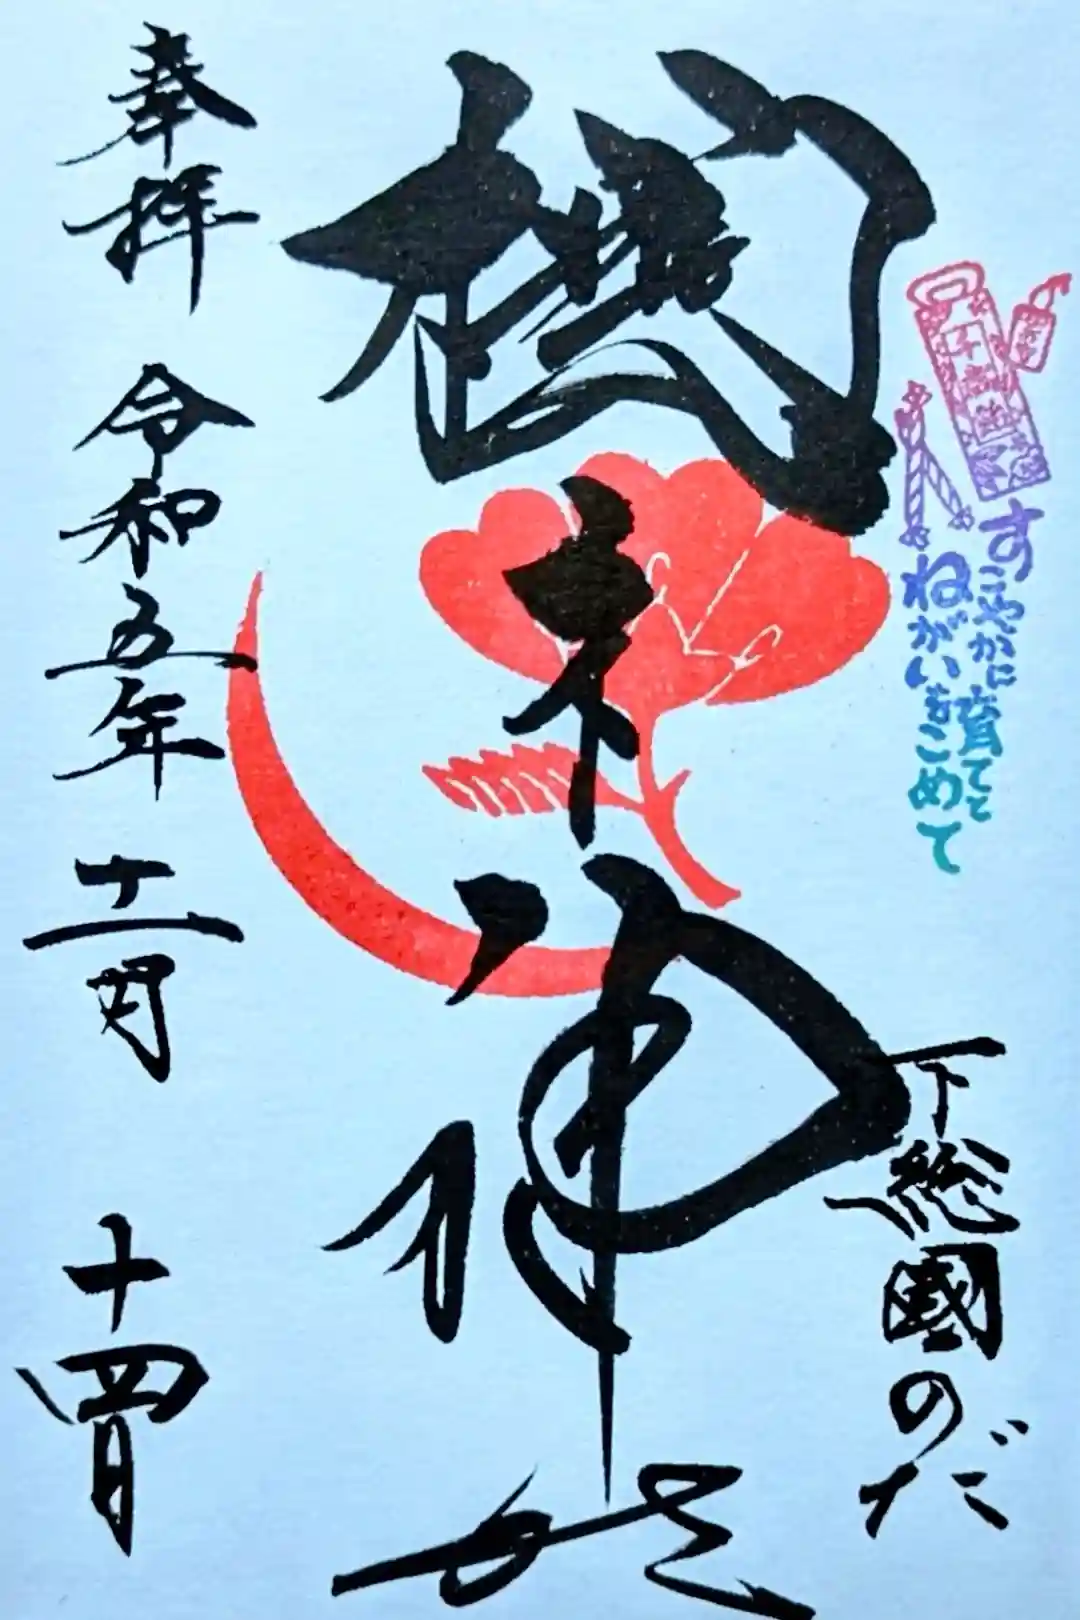 千歳飴
すこやかに育てと
ねがいをこめて
下総國のだ
櫻木神社
奉拝 令和五年十一月十四日